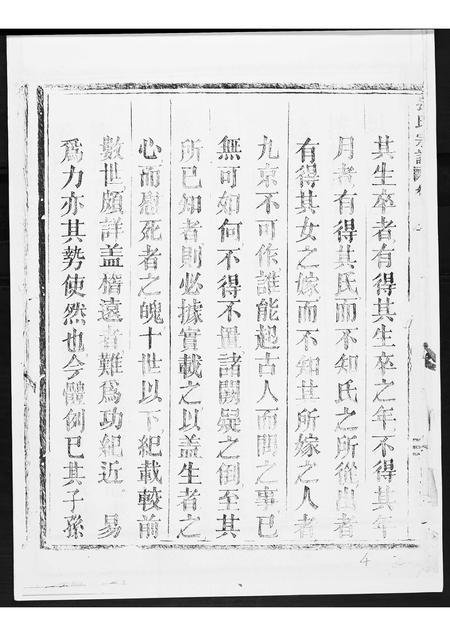 其生卒者有得其生卒之年不得其年
月者有得其氏而不知氏之所從出者
有得其女之嫁而不知其所嫁之人者
九京不可作誰能起古人而問之事已
無可如何不得不置諸闕疑之倒至其
所已知者則必據實載之以盖生者之
心而慰死者之魄十世以下紀載較前
數世頗詳盖稽遠者難爲功紀近 易
爲力亦其勢使然也今體例已其子孫
4